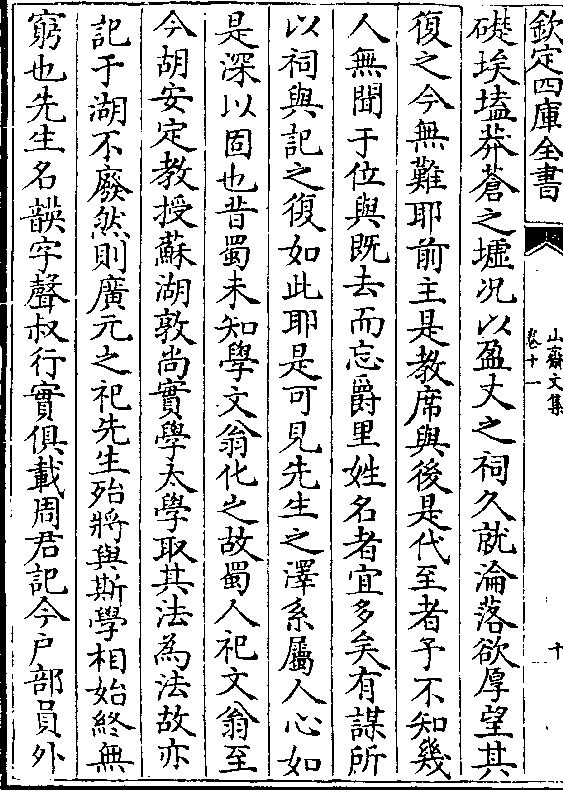 欽定四庫全書
山齋文集
卷十一
十
礎埃壒莽蒼之墟况以盈丈之祠久就淪落欲厚望其
復之今無難耶前主是教席與後是代至者予不知幾
人無聞于位與既去而忘爵里姓名者宜多矣有謀所
以祠與記之復如此耶是可見先生之澤系屬人心如
是深以固也昔蜀未知學文翁化之故蜀人祀文翁至
今胡安定教授蘇湖敦尚實學太學取其法為法故亦
記于湖不廢然則廣元之祀先生殆將與斯學相始終無
窮也先生名韺字聲叔行實俱載周君記今户部員外